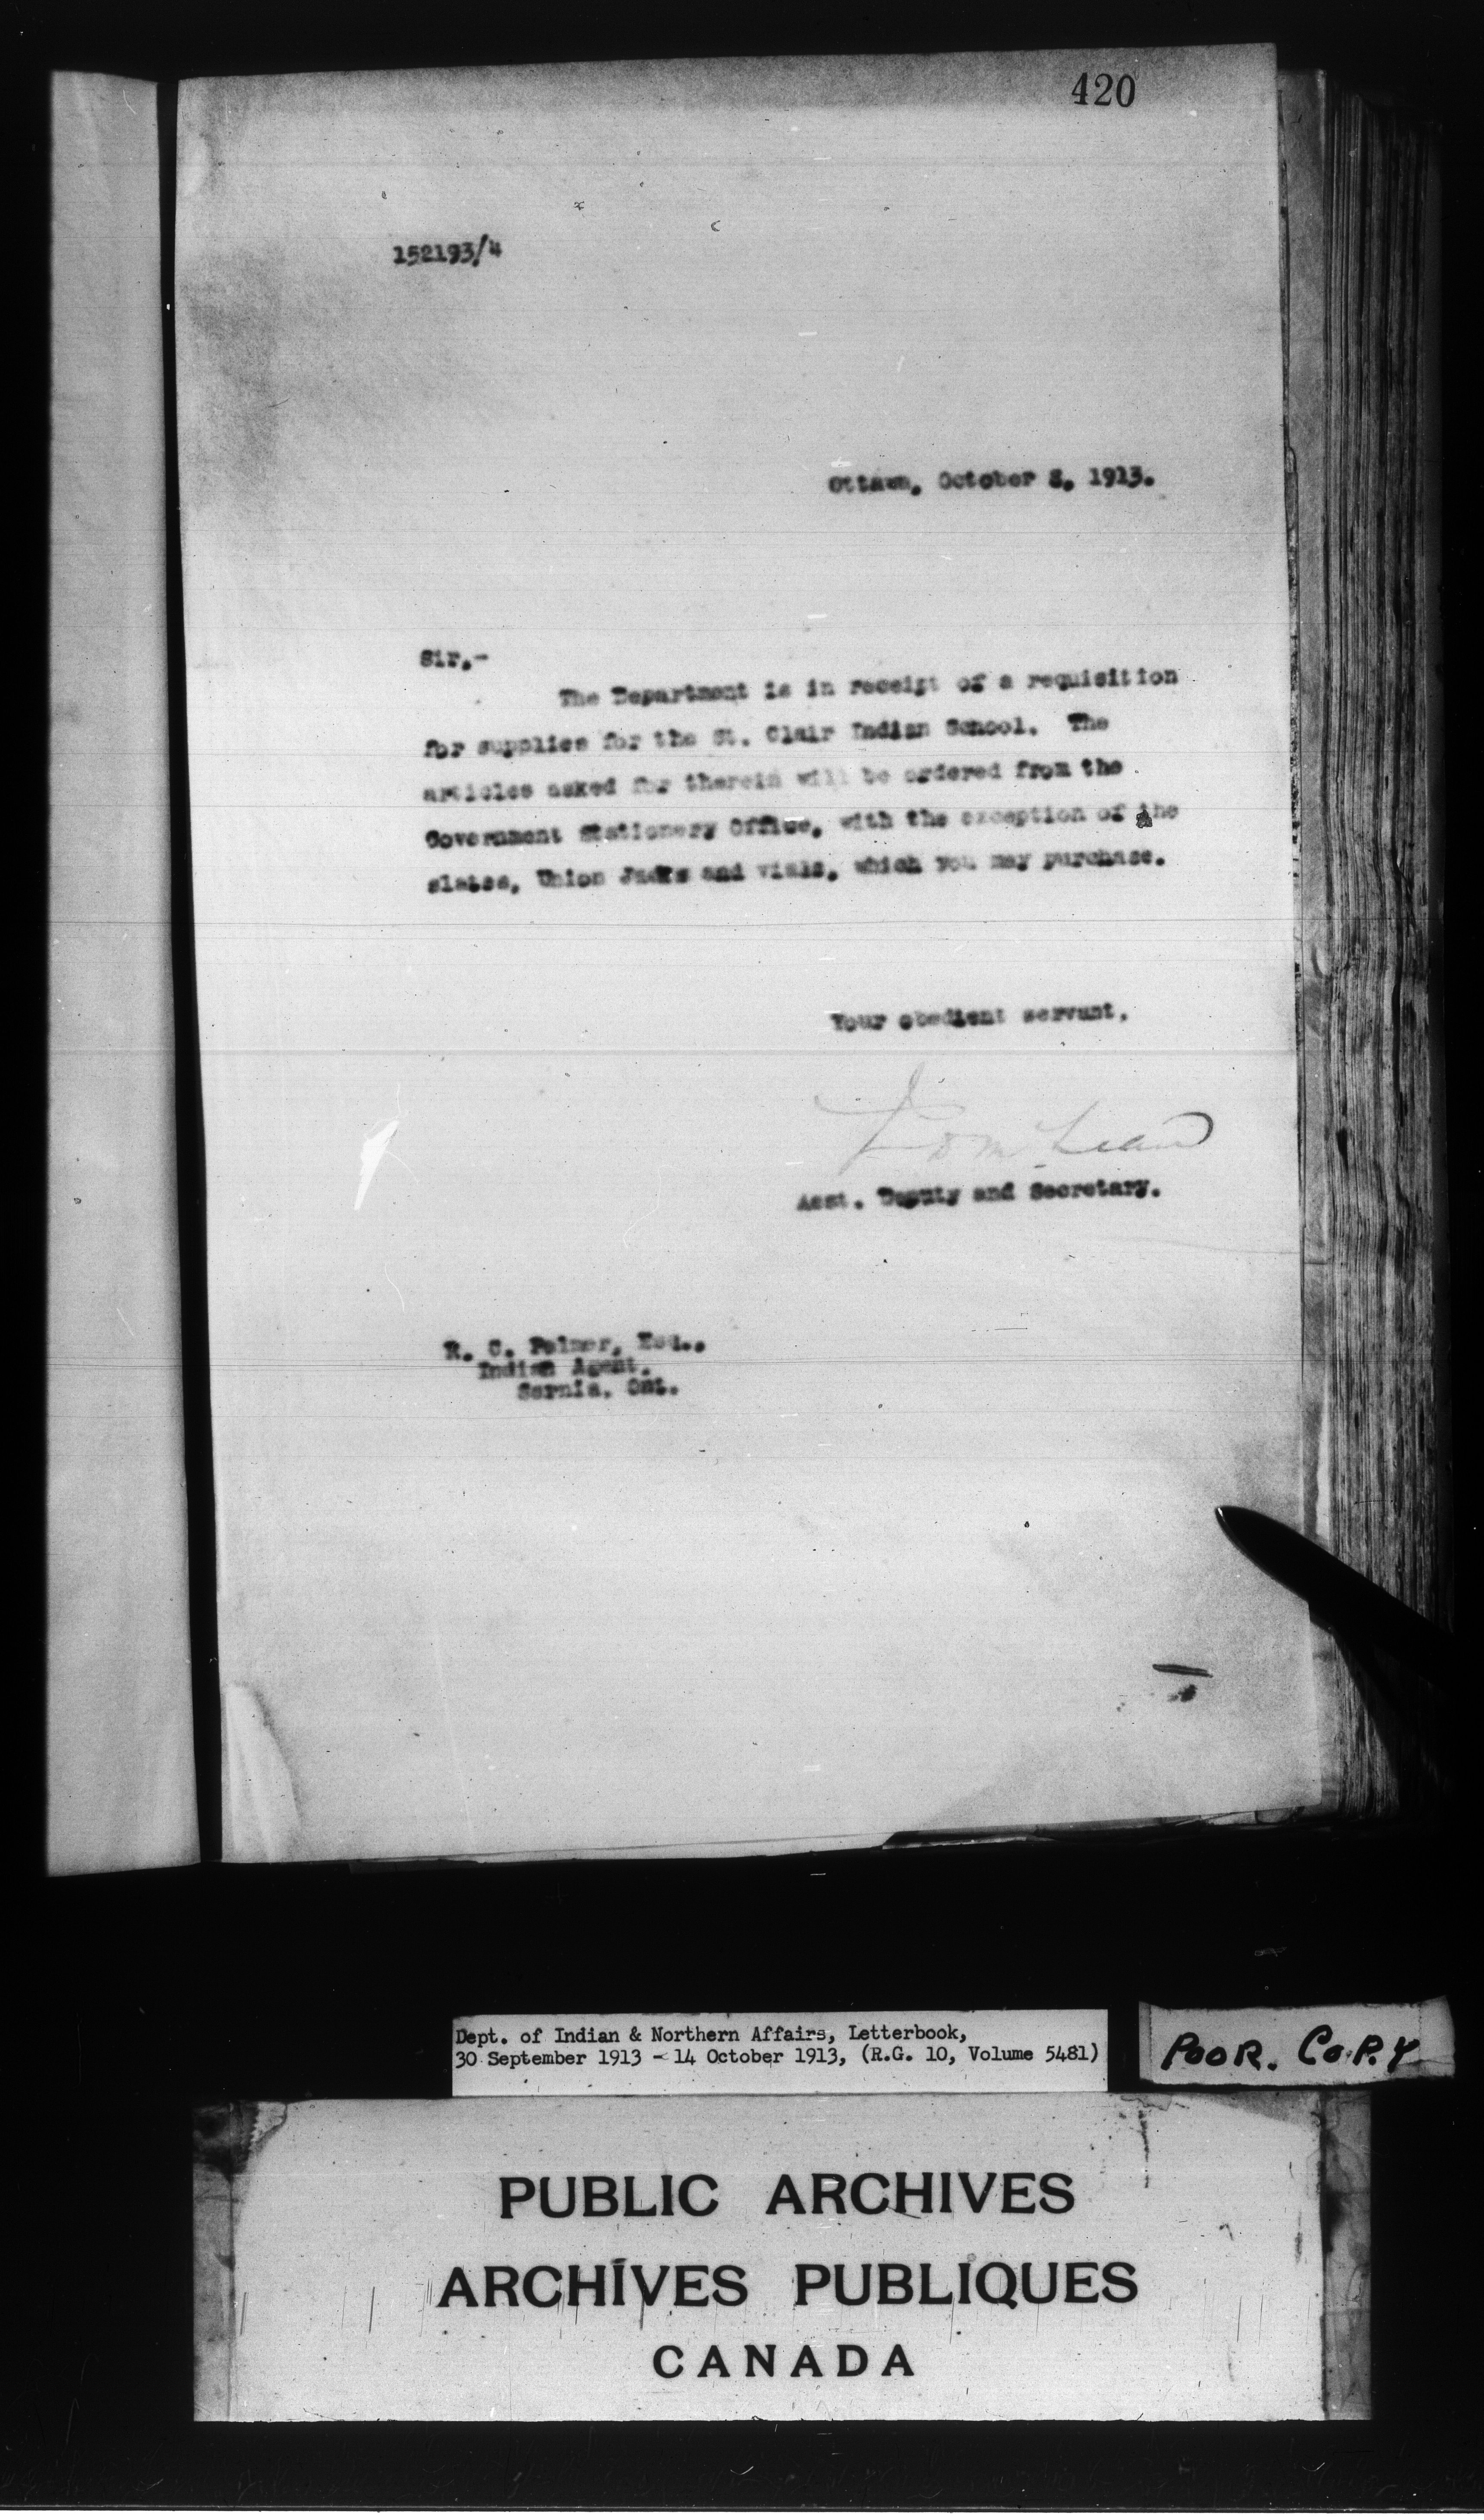 420
152193/4
Ottawa, October 8, 1913.
Sir,-
The Department is in receipt of a requisition
for supplies for the St. Clair Indian School. The
articles asked for therein will be ordered from the
Government Stationery Office, with the exception of the
slates, Union Jacks and vials, which you may purchase.
Your obedient servant,
J D McLean
Asst. Deputy and Secretary.
R. C. Palmer, Esq.,
Indian Agent,
Sarnia, Ont.
Dept. of Indian & Northern Affairs, Letterbook,
30 September 1913 - 14 October 1913, (R.G. 10, Volume 5481)
POOR. COPY
PUBLIC ARCHIVES
ARCHIVES PUBLIQUES
CANADA